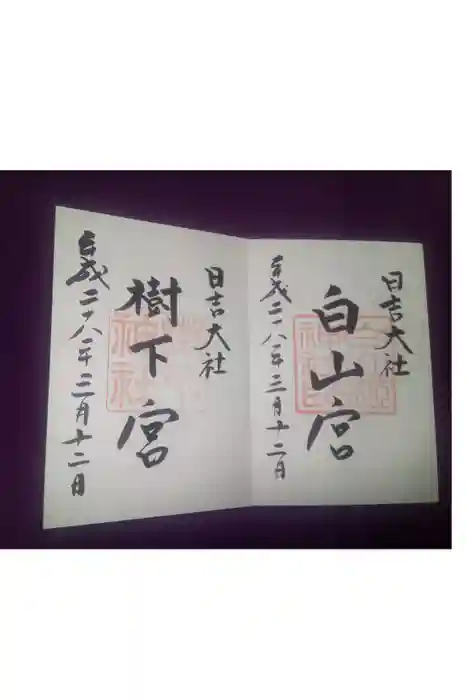 日吉大社
白山宮
平成二八年三月十二日
日吉大社
樹下宮
平成二八年三月十二日